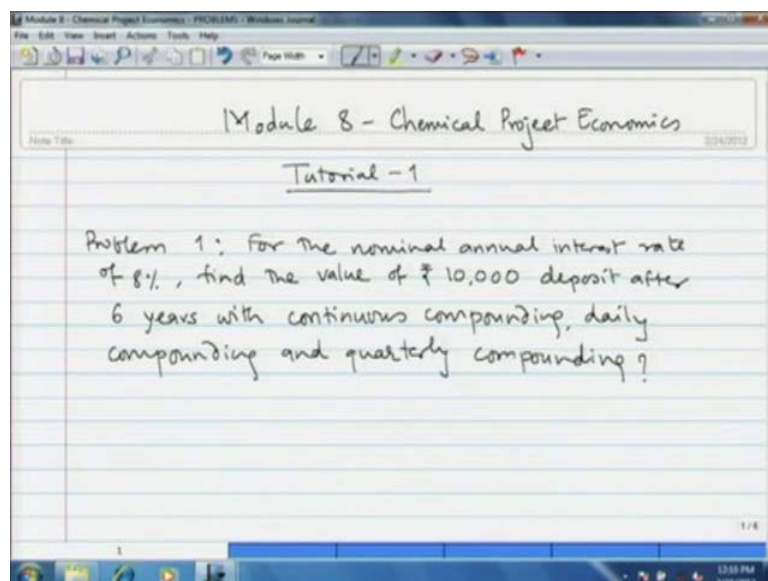 Module 8 - Chemical Project Economics - PROBLEMS - Windows Journal
File Edit View Insert Actions Tools Help
Page Width
Module 8 - Chemical Project Economics
Note Title
2/24/2012
Tutorial - 1
Problem 1: For the nominal annual interest rate
of 8%, find the value of ₹ 10,000 deposit after
6 years with continuous compounding, daily
compounding and quarterly compounding?
1 / 6
1
12:55 PM